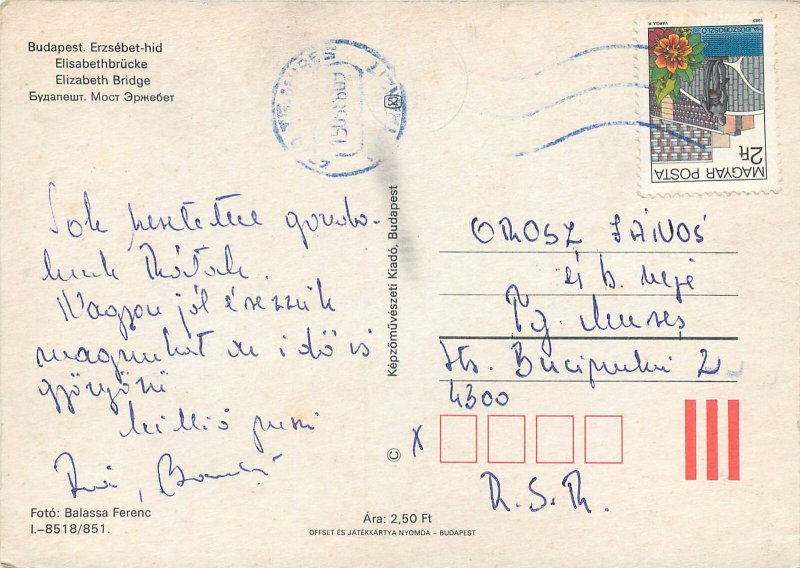 Budapest. Erzsébet-híd
Elisabethbrücke
Elizabeth Bridge
Будапешт. Мост Эржебет
1983
VARGA P.
HAJDÚSZOBOSZLÓ
2Ft
MAGYAR POSTA
Sok szeretettel gondo-
lunk Rátok.
Nagyon jól érezzük
magunkat az idő is
gyönyörű
Millió puszi
Képzőművészeti Kiadó, Budapest
©
OROSZ JÁNOS
és b. neje
Tg. Mureş
Str. Bucinului 2
4300
X
R.S.R.
Fotó: Balassa Ferenc
I.–8518/851.
Ára: 2,50 Ft
OFFSET ÉS JÁTÉKKÁRTYA NYOMDA – BUDAPEST